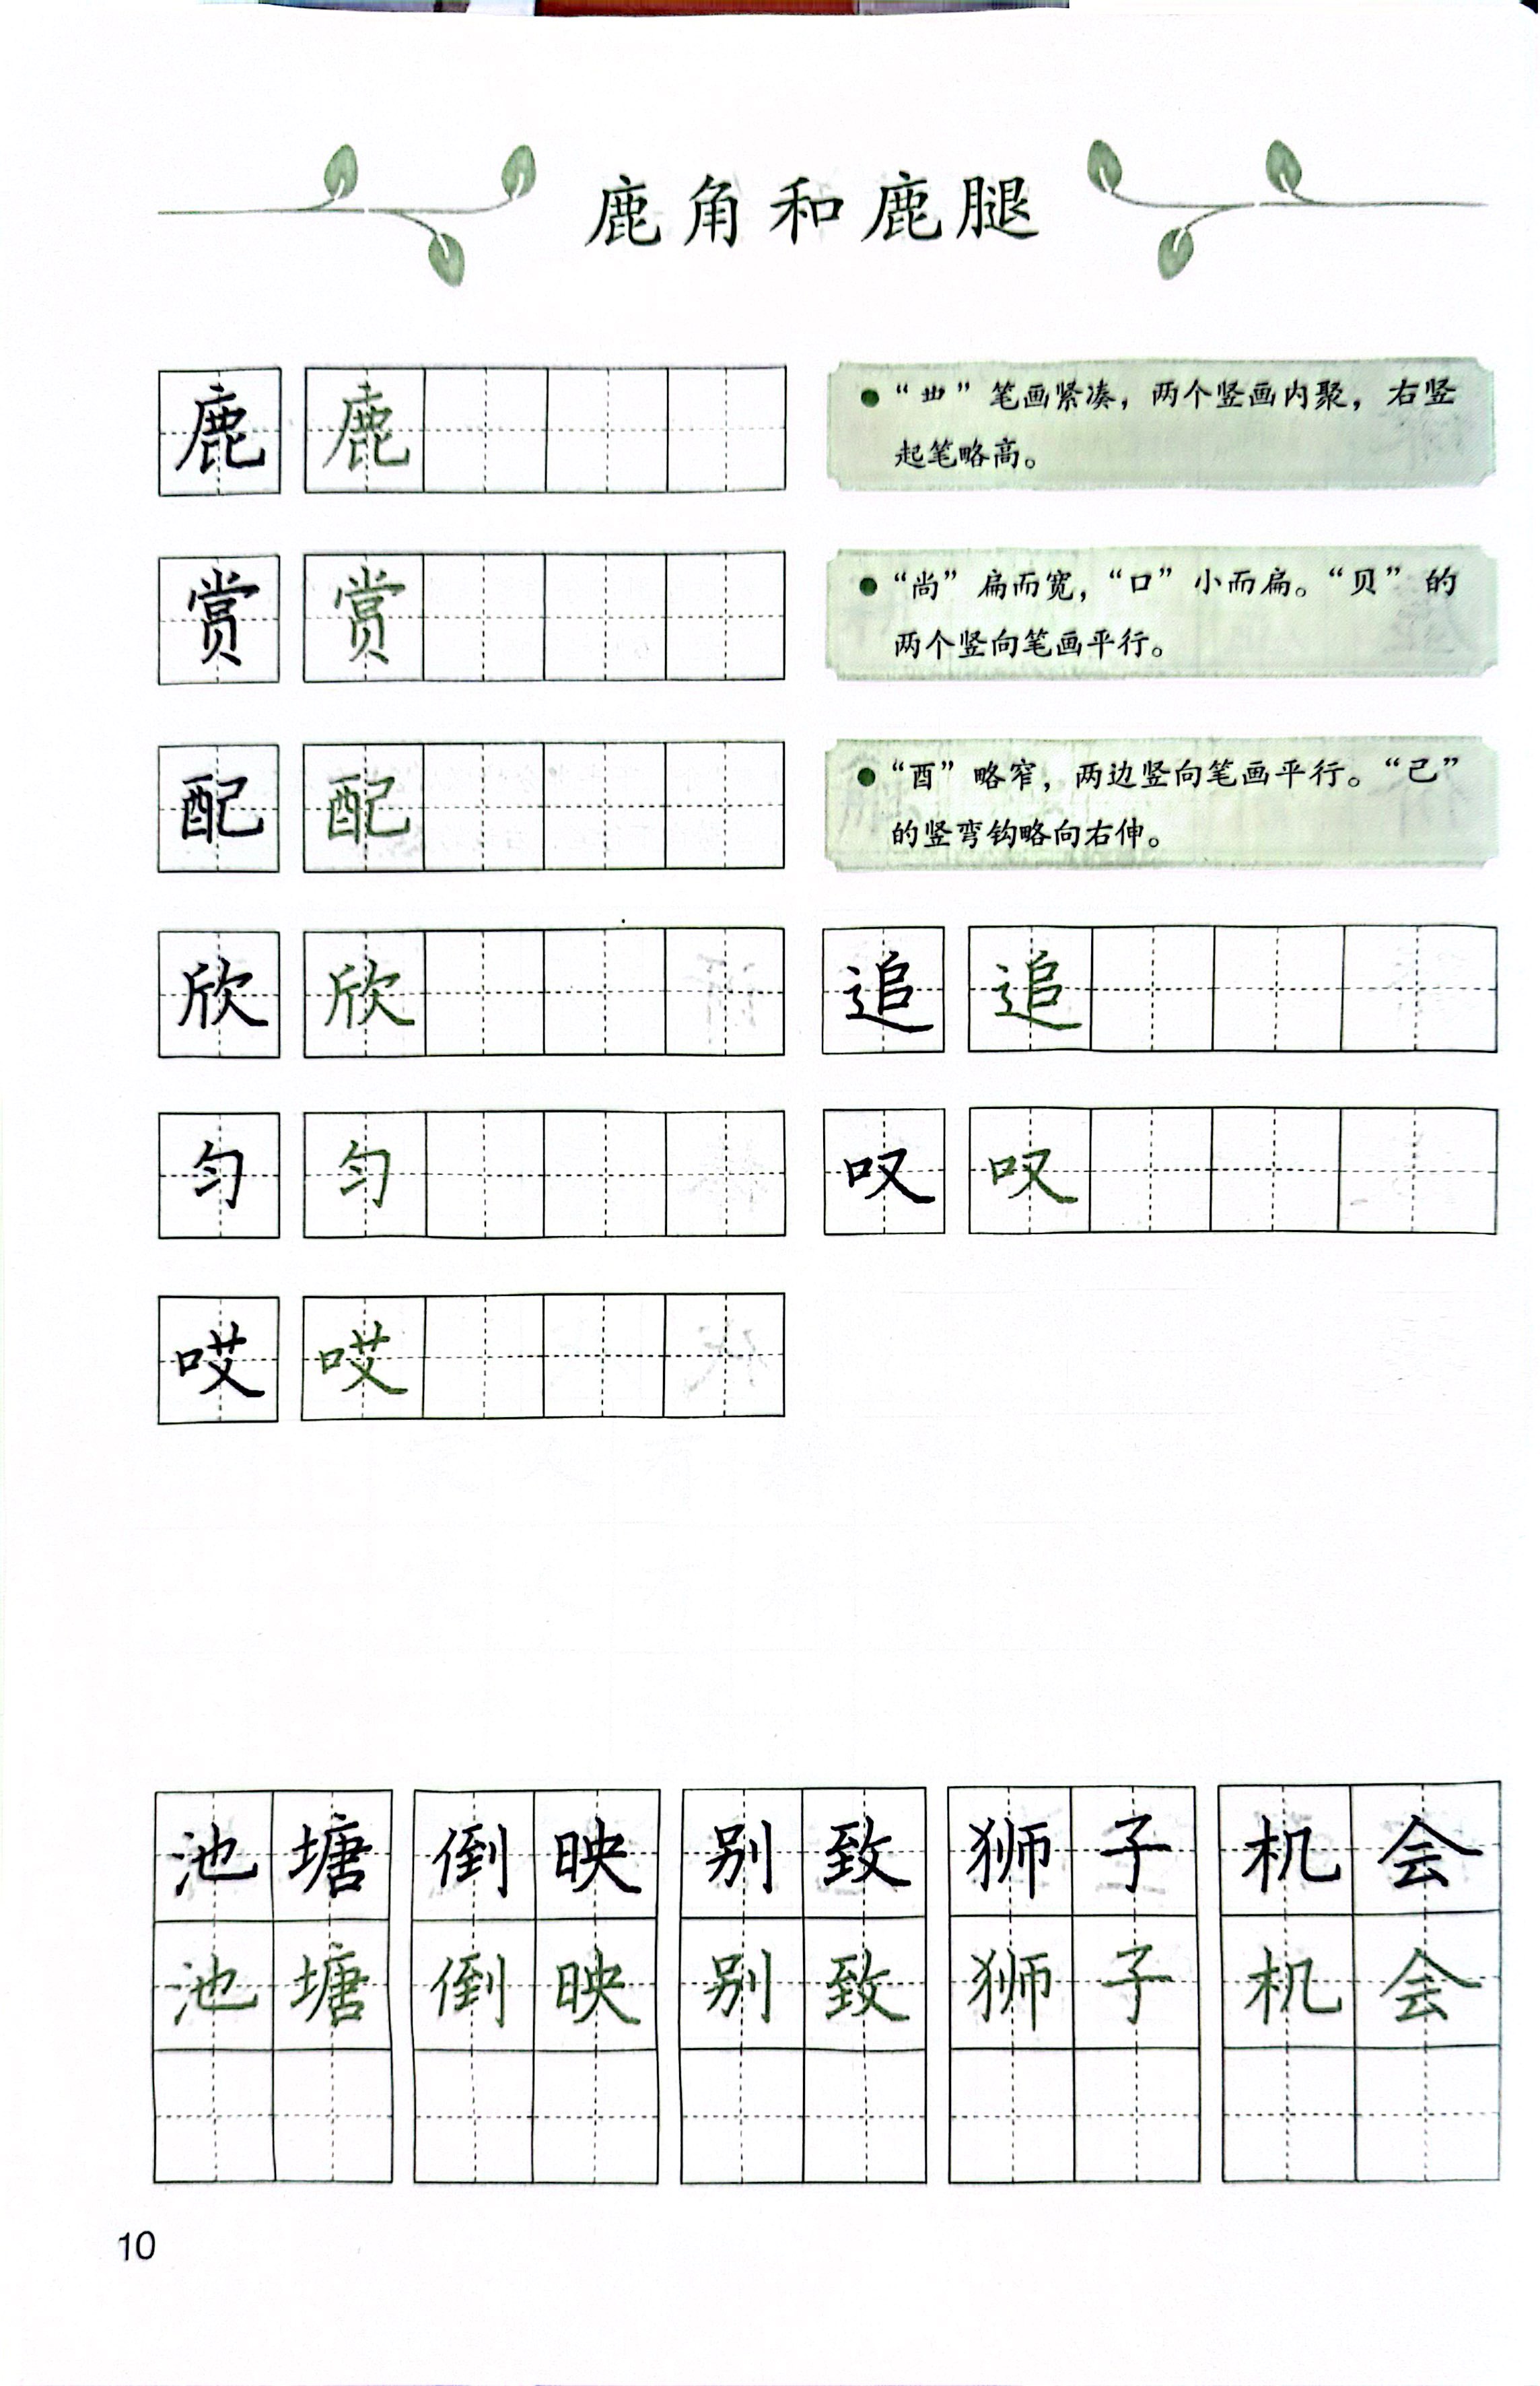 鹿角和鹿腿
鹿 鹿
“⺻” 笔画紧凑，两个竖画内聚，右竖
起笔略高。
赏 赏
“尚”扁而宽，“口”小而扁。“贝”的
两个竖向笔画平行。
配 配
“酉”略窄，两边竖向笔画平行。“己”
的竖弯钩略向右伸。
欣 欣 追 追
匀 匀 叹 叹
哎 哎
池塘 倒映 别致 狮子 机会
池塘 倒映 别致 狮子 机会
10